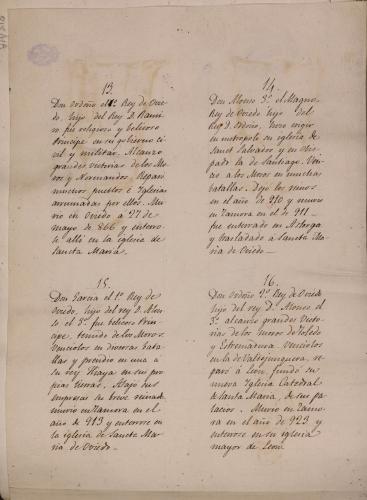 13.
Don Ordoño el 1º Rey de Ovie-
do, hijo del Rey D. Rami-
ro fue religioso y belicoso
Principe en su gobierno ci-
vil y militar. Alcanzó
grandes victorias de los Mo-
ros y Normandos. Reparó
muchos pueblos é Iglesias
arruinadas por ellos. Mu-
rio en Oviedo a 27 de
mayo de 866 y enterro-
se alli en la iglesia de
Sancta Maria.
14.
Don Alonso 3º el Magno,
Rey de Oviedo hijo del
Rey D. Ordoño, hizo erigir
en metropole su iglesia de
Sanct Salvador y en obis-
pado la de Santiago. Ven-
cio a los Moros en muchas
batallas. Dejó los reinos
en el año de 910 y murio
en Zamora en el de 911
fue enterrado en Astorga
y trasladado a Sancta Ma-
ria de Oviedo.
15.
Don Garcia el 1º, Rey de
Oviedo, hijo del rey D. Alon-
so el 3º fue belicoso Prin-
cipe, temido de los Moros.
Venciolos en diversas bata-
llas y prendio en una a
su rey Ayaya en sus pro-
pias tierras. Atajó sus
empresas su breve reinado
murio en Zamora en el
año de 913 y enterrose en
la iglesia de Sancta Ma-
ria de Oviedo.
16.
Don Ordoño 2º Rey de Oviedo
hijo del rey Dn Alonso el
3º alcanzó grandes victo-
rias de los moros de Toledo
y Estremadura. Venciolos
en la de Valdejunquera, re-
paró a Leon, fundó su
nueva Iglesia Catedral
de Santa Maria, de sus pa-
lacios. Murio en Zamo-
ra en el año de 923 y
enterrose en su iglesia
mayor de Leon.